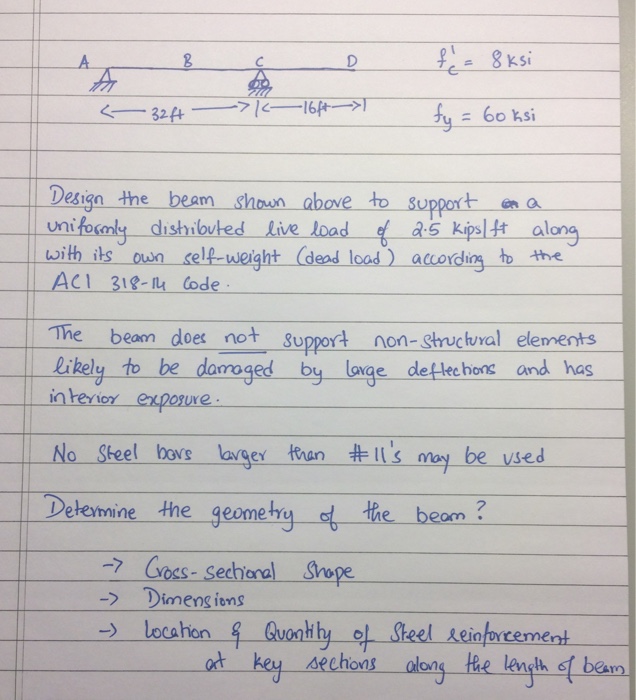 A B C D f'c = 8 ksi
32ft 16ft fy = 60 ksi
Design the beam shown above to support a
uniformly distributed live load of 2.5 kips/ft along
with its own self-weight (dead load) according to the
ACI 318-14 Code.
The beam does not support non-structural elements
likely to be damaged by large deflections and has
interior exposure.
No Steel bars larger than #11's may be used
Determine the geometry of the beam?
-> Cross-sectional Shape
-> Dimensions
-> location & Quantity of Steel reinforcement
at key sections along the length of beam